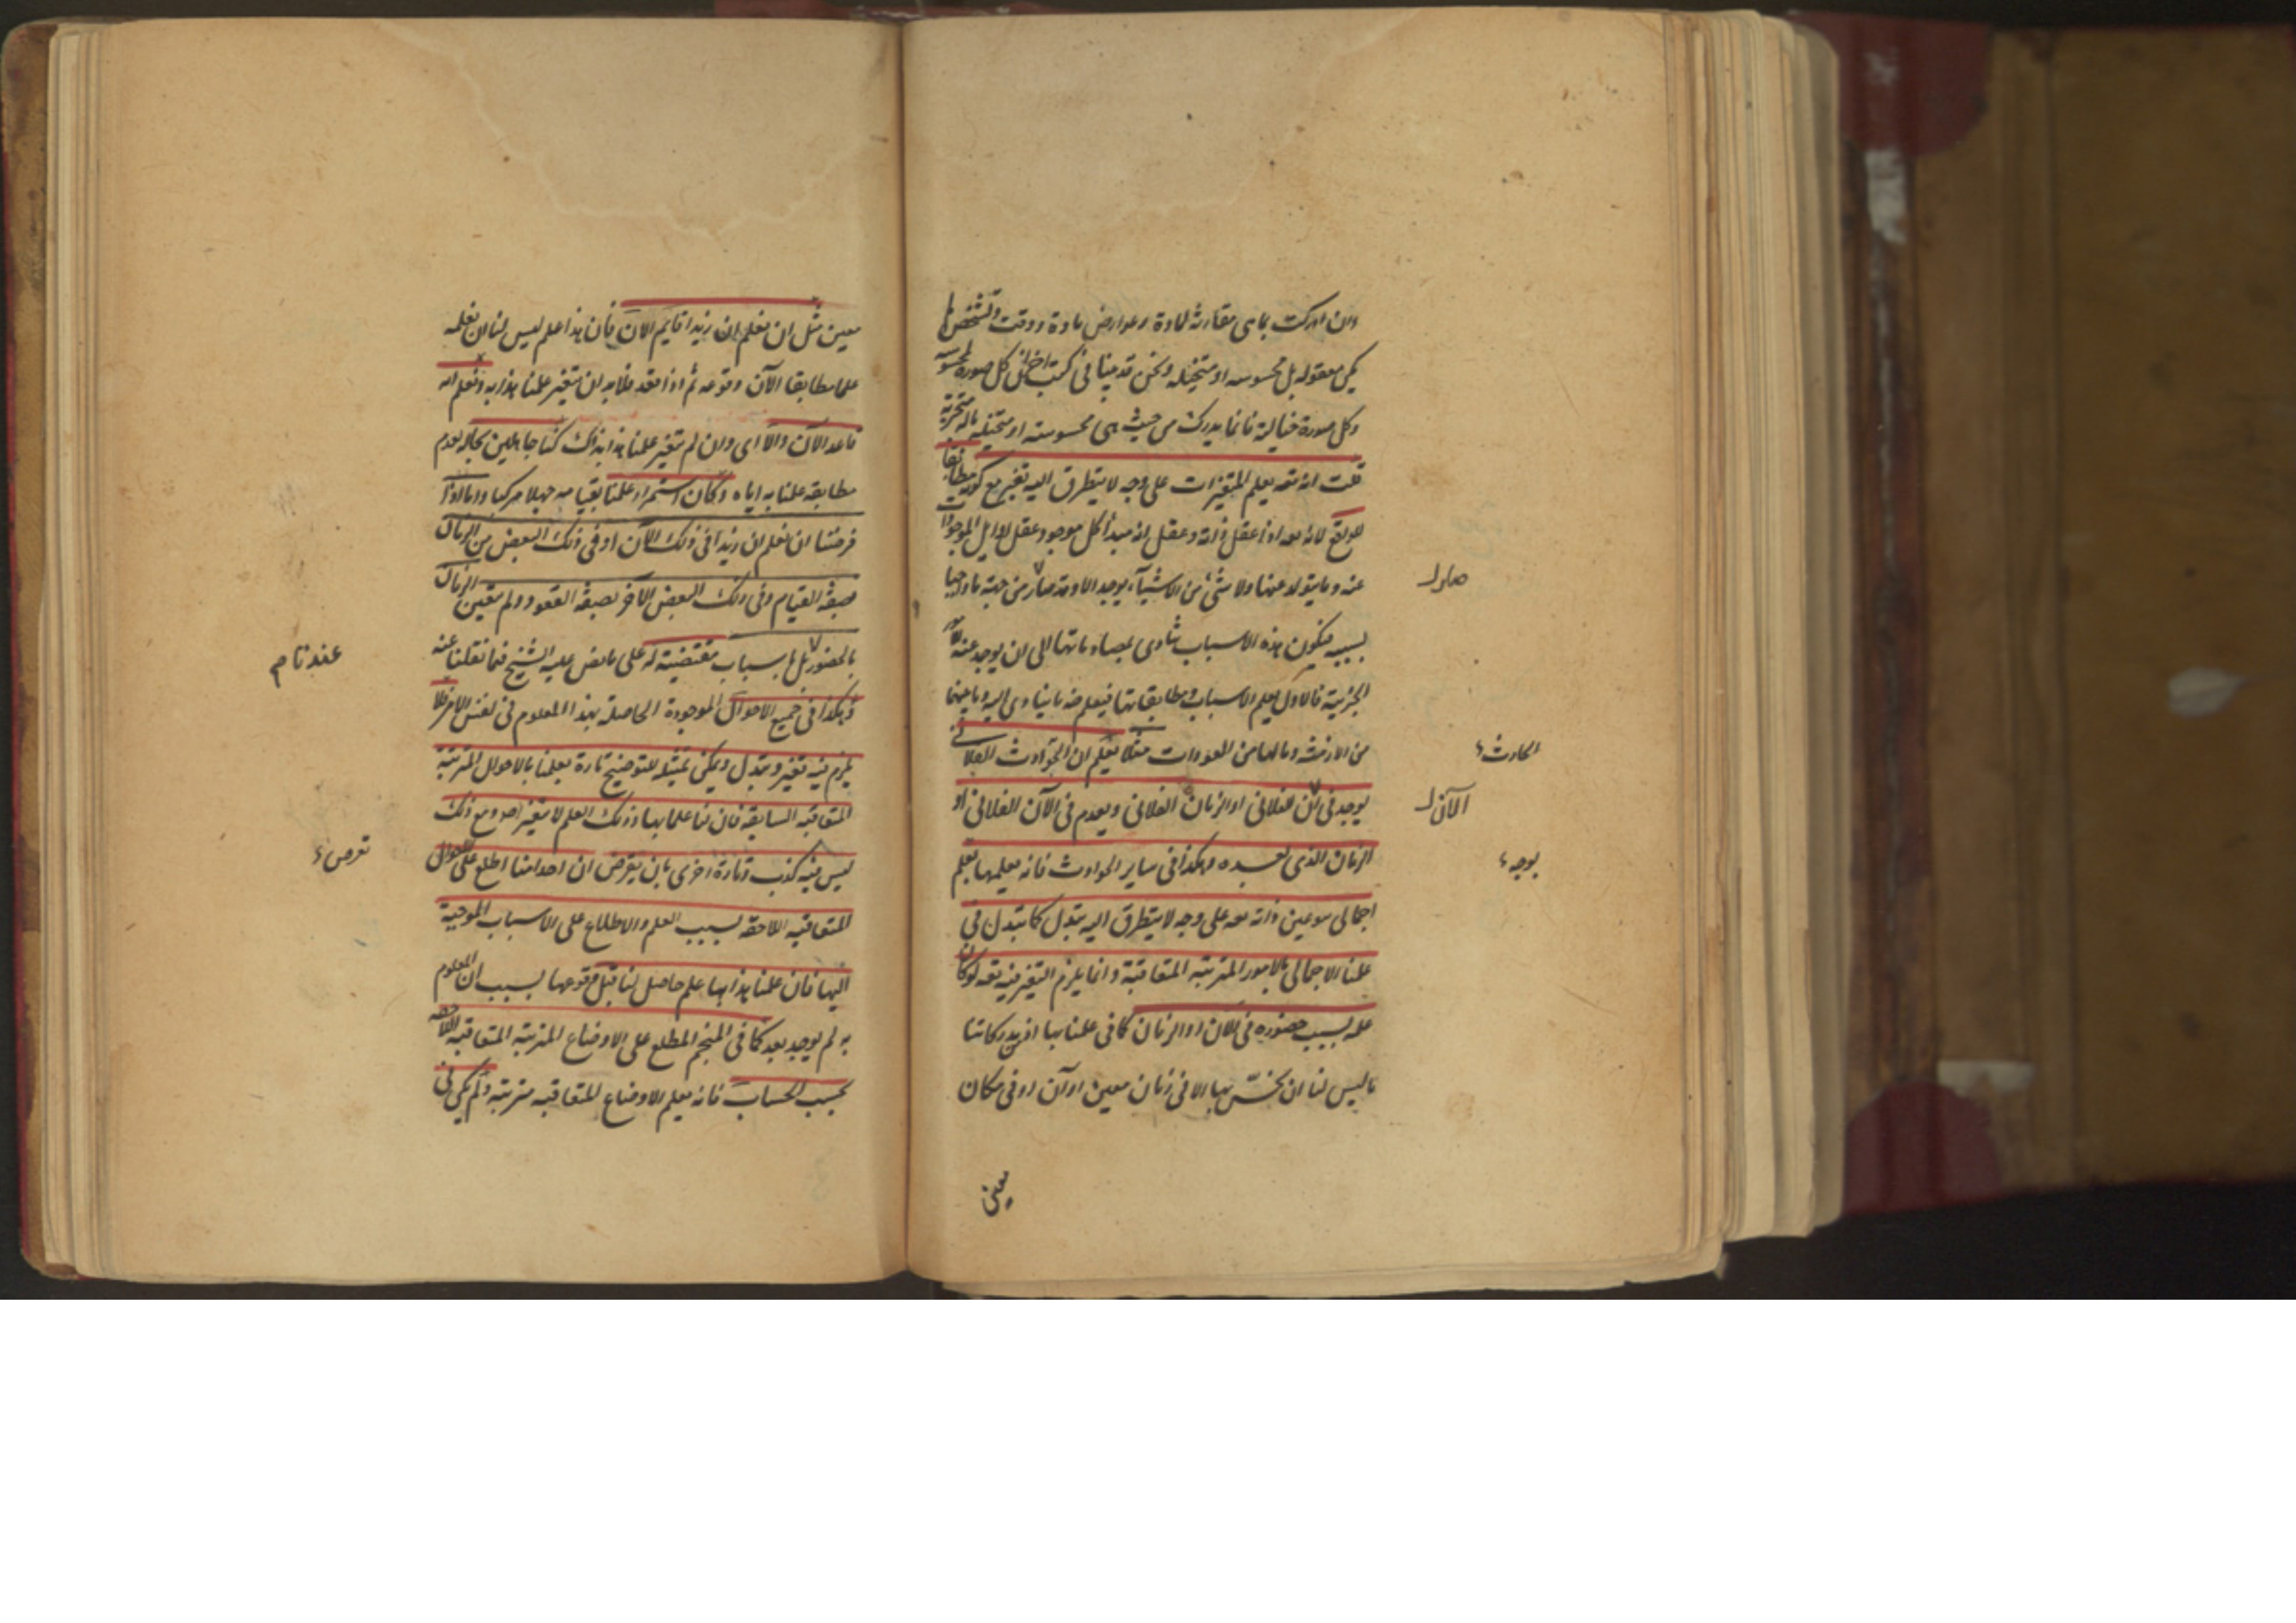 وان ادركت بما هى مقارنة لمادة وعوارض مادة ووقت وتشخص لم
يكن معقولة بل محسوسه او متخيله ونحن قد بينا فى كتب اخرى ان كل صورة محسوسه
وكل صورة خيالية فانما يدرك من حيث هى محسوسته او متخيله بالة متجزية
قلت انه تعه يعلم المتغيرات على وجه لا يتطرق اليه تغير مع كونه مطابقا
للواقع لانه تعه اذا عقل ذاته وعقل انه مبدأ كل موجود عقل اوايل الموجودات
عنه وما يتولد عنها ولا شئ من الاشيآء يوجد الا وقد صار من جهة ما واجبا
بسببه فتكون هذه الاسباب يتادى بمصادماتها الى ان يوجد عنها الامور
الجزئية فالاول يعلم الاسباب ومطابقاتها فيعلم ضرورة ما يتادى اليه وما بينها
من الازمنة وما لها من العودات مثلا يعلم ان الحوادث الفلانى
يوجد فى الآن الفلانى او الزمان الفلانى ويعدم فى الآن الفلانى او
الزمان الذى بعده وهكذا فى ساير الحوادث فانه يعلمها بعلم
اجمالى هو عين ذاته تعه على وجه لا يتطرق اليه تبدل كما تبدل فى
علمنا الاجمالى بالامور المترتبه المتعاقبة وانما يلزم التغير فيه تعه لو كان
علمه بسبب حضوره فى الان او الزمان كما فى علمنا بها
ما ليس لنا ان نحسّ بها الا فى زمان معين او آن او فى مكان
معين
صار
الحادث
الآن
بوجه
معين مثل ان نعلم ان زيدا قايم الآن فان هذا علم ليس لنا ان نعلمه
علما مطابقا الآن وقوعه ثم اذا قعد فلا بد ان يتغير علمنا هذا به ونعلم انه
قاعد الآن والا اى وان لم يتغير علمنا هذا بذلك كنا جاهلين بحاله لعدم
مطابقه علمنا به اياه وكان استمرار علمنا بقيامه جهلا مركبا واما اذا
فرضنا ان نعلم ان زيدا فى ذلك الآن او فى ذلك البعض من الزمان
بصفة القيام وفى ذلك البعض الآخر بصفة القعود ولم يتعين الزمان
بالحضور بل باسباب مقتضيته له على ما نص عليه الشيخ فما نقلنا عنه
وهكذا فى جميع الاحوال الموجودة الحاصلة بهذا المعلوم فى نفس الامر فلا
يلزم فيه تغير وتبدل ويمكن تمثيله للتوضيح تارة بعلمنا بالاحوال المترتبة
المتعاقبه السابقه فان لنا علما بها وذلك العلم لا يتغير اصلا ومع ذلك
ليس فيه كذب وتارة اخرى بان يفرض ان احدا منا اطلع على الاحوال
المتعاقبه اللاحقه بسبب العلم والاطلاع على الاسباب الموجبة
اليها فان علمنا هذا بها علم حاصل لنا قبل وقوعها بسبب ان المعلوم
به لم يوجد بعد كما فى المنجم المطلع على الاوضاع المترتبه المتعاقبه اللاحقه
بحسب الحساب فانه يعلم الاوضاع المتعاقبه مترتبة ولم يكن فى